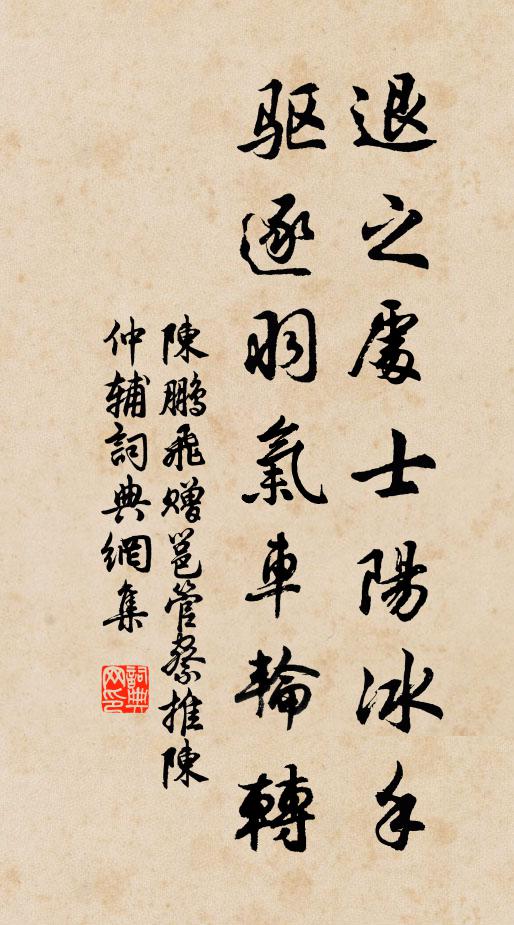 退之處士陽冰手
驱逐羽氣車輪轉
陳鵬飛赠邕管察推陳
仲辅詞典網集
詞典网印